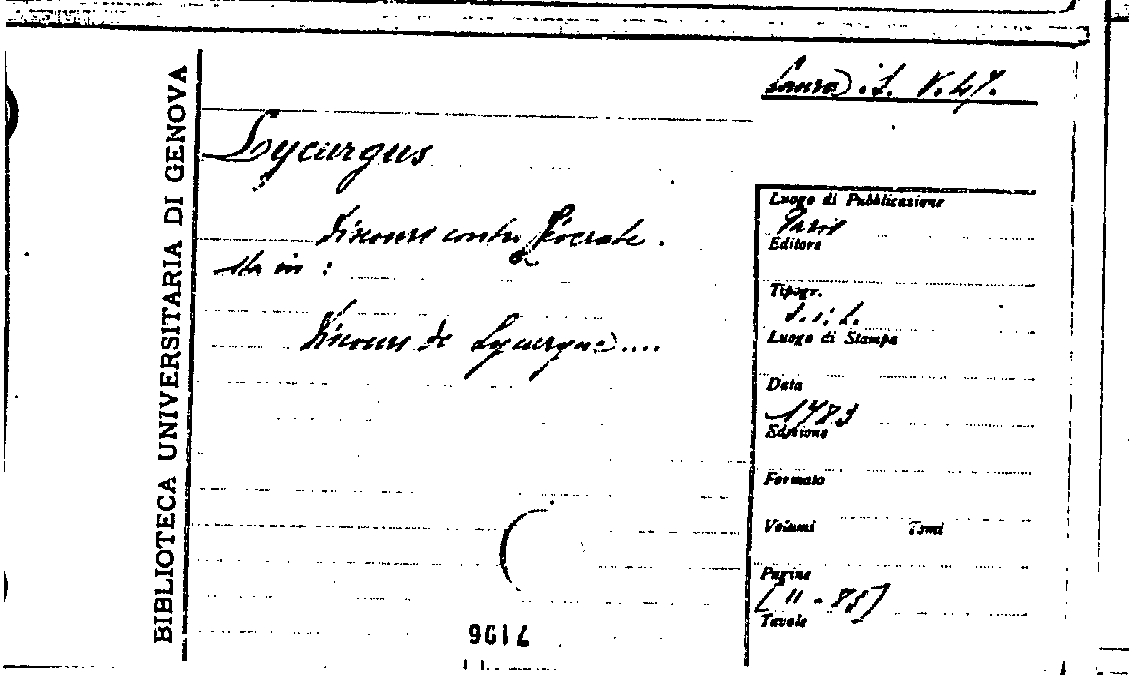 BIBLIOTECA UNIVERSITARIA DI GENOVA
Laura. L. V. 47.
Lycurgus
Discours contre Léocrate.
Sta in :
Discours de Lycurgue....
Luogo di Pubblicazione
Paris
Editore
Tipogr.
Luogo di Stampa
Data
1783
Edizione
Formato
Volumi Tomi
Pagine
[11-85]
Tavole